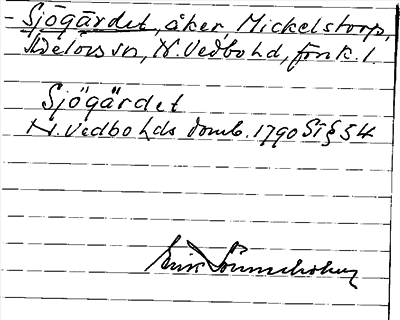 - Sjögärdet, åker, Mickelstorp,
sn, N. Vedbo hd, fönk. 1
Sjögärdet
N. Vedbo hds domb. 1790 ST § 54
Erik